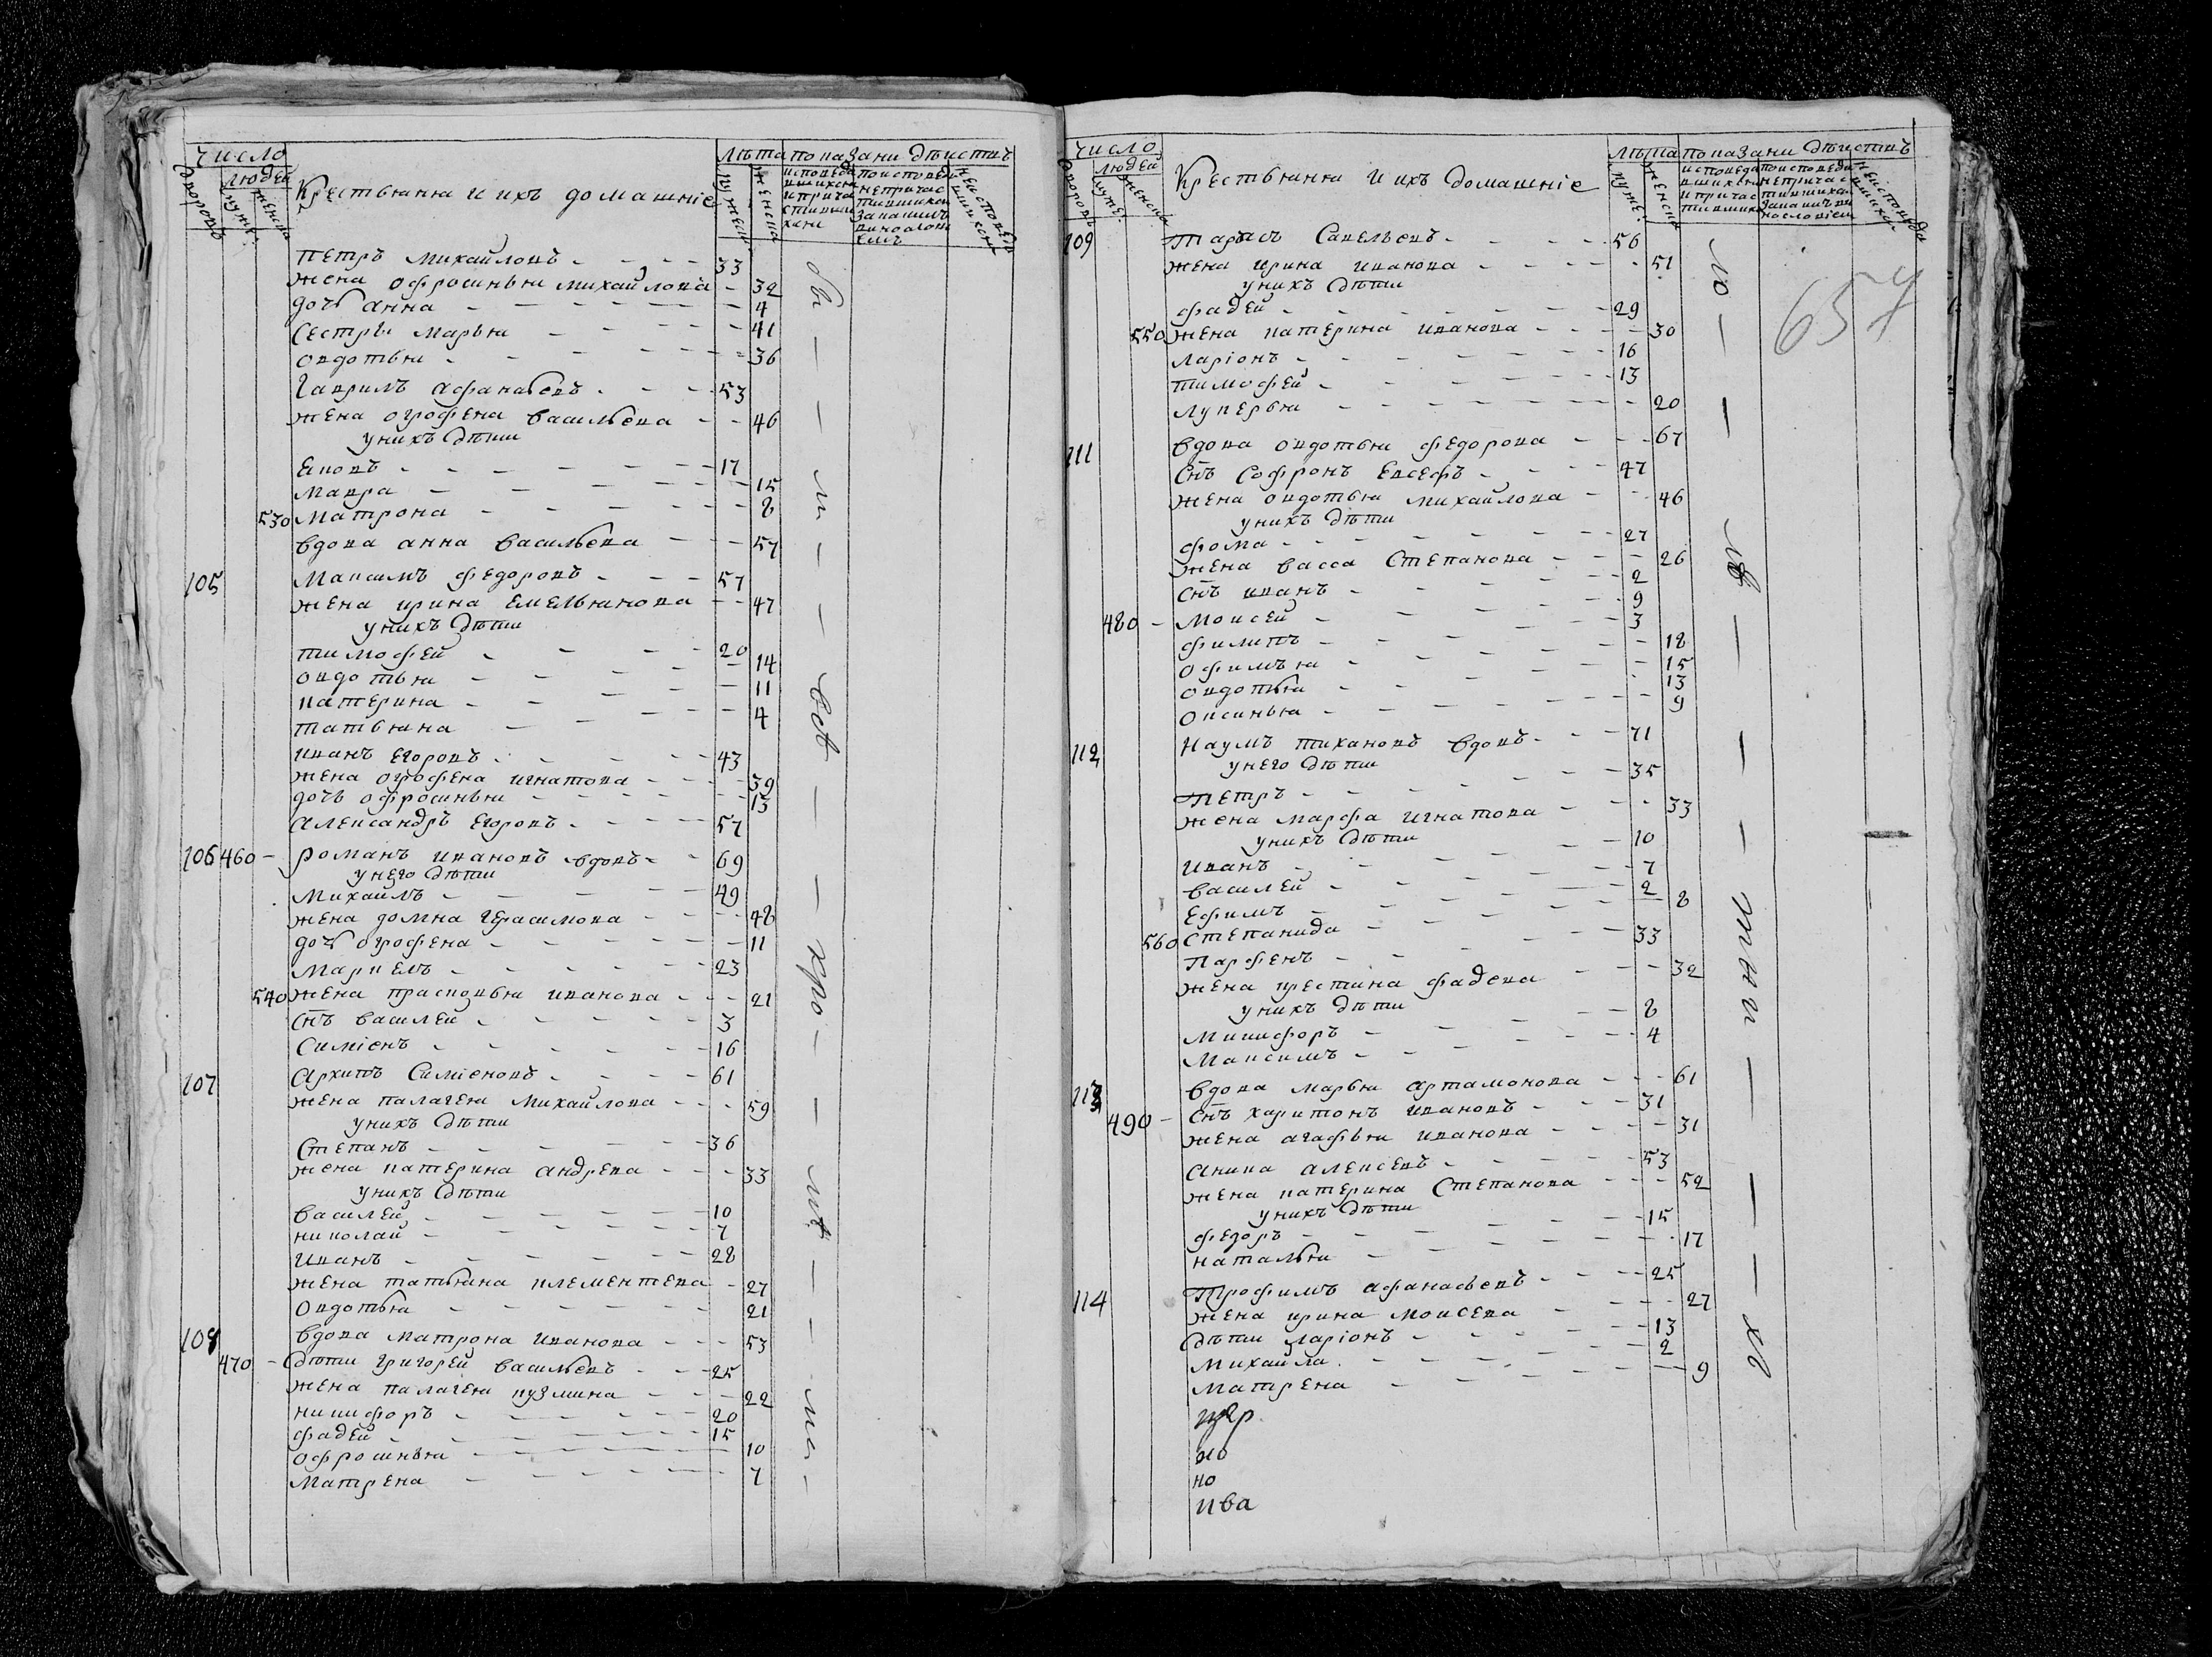 число
людей
дворовъ
мужес:
женска
Крестьяня и ихъ домашніе
Лѣта
мужеск
женска
показани дѣиствъ
исповеда
вшихся
и прича
стивши
хся
по исповеди
непричас
тившихся
за каким
винослов
емъ
неисповеда
вшихся
Петръ Михайловъ - - - - 33
жена офросинья михайлова - 32
дочь анна - - - - - 4
Сестры Марья - - - - 41
овдотья - - - - - 36
Гаврилъ афанасьевъ - - - 53
жена ографена васильева - - 46
у нихъ дѣти
Яковъ - - - - - 17
Мавра - - - - - 15
530 Матрона - - - - - 8
вдова анна васильева - - - 57
105 Максимъ федоровъ - - - 57
жена ирина Емельянова - - 47
у нихъ дѣти
тимофей - - - - 20
овдотья - - - - 14
катерина - - - - 11
татьяна - - - - 4
иванъ Егоровъ - - - - 43
жена ографена игнатова - - - 39
дочь офросинья - - - - 13
александръ Егоровъ - - - - 57
106 460 - романъ ивановъ вдовъ - - 69
у него дѣти
Михаилъ - - - - - 49
жена домна герасимова - - - 48
дочь ографена - - - - - 11
Маркелъ - - - - - 23
540 жена прасковья иванова - - - 21
Снъ василей - - - - - 3
Симіенъ - - - - - 16
107 Архипъ Симіеновъ - - - - 61
жена палагея Михайлова - - - 59
у нихъ дѣти
Степанъ - - - - - 36
жена катерина андрева - - - 33
у нихъ дѣти
василей - - - - - 10
николай - - - - - 7
Иванъ - - - - - 28
жена татьяна клементева - 27
Овдотья - - - - - 21
108 вдова Матрона иванова - - - 53
470 - дѣти григорей васильевъ - - - 25
жена палагея кузмина - - - 22
никифоръ - - - - - 20
фадей - - - - - 15
офросинья - - - - - 10
Матрена - - - - - 7
бы - - ли - - всѣ - - хро - - - - ма -
число
людей
дворовъ
мужес:
женска
Крестьяня и ихъ домашніе
Лѣта
мужес:
женска
показани дѣиствъ
исповеда
вшихся
и причас
тивших
по исповеди
неприча с
тившихс
за каким ви
нословіем
неисповеда
вшихс
657
109 Тарасъ Савельевъ - - - - 56
жена ирина иванова - - - - 51
у нихъ дѣти
фадей - - - - - - 29
550 жена катерина иванова - - - - 30
Ларіонъ - - - - - - 16
тимофей - - - - - 13
лукерья - - - - - - 20
111 вдова овдотья федорова - - - 67
Снъ Софронъ Евсефъ - - - - 47
жена овдотья михайлова - - - 46
у нихъ дѣти
фома - - - - - - 27
жена васса Степанова - - - 26
Снъ иванъ - - - - - 2
480 - Моисей - - - - - 9
филипъ - - - - - 3
офимья - - - - - 18
овдотья - - - - - 15
оксинья - - - - - 13
9
112 Наумъ тихановъ вдовъ - - - 71
у него дѣти
Петръ - - - - - 35
жена Марфа игнатова - - - 33
у нихъ дѣти
Иванъ - - - - - 10
василей - - - - - 7
Ефимъ - - - - - 2
560 Степанида - - - - 8
Парфенъ - - - - - 33
жена крестина фадева - - - 32
у нихъ дѣти
Микифоръ - - - - - 8
Максимъ - - - - - 4
113 вдова марья артамонова - - - 61
490 - Снъ харитонъ ивановъ - - - 31
жена агафья иванова - - - - 31
аника алексевъ - - - - 53
жена катерина Степанова - - - 52
у нихъ дѣти
федоръ - - - - - 15
наталья - - - - - 17
114 Трофимъ афанасьевъ - - - - 25
жена ирина моисева - - - - 27
дѣти ларіонъ - - - - 13
Михаила - - - - - 2
Матрена - - - - - 9
но
ива